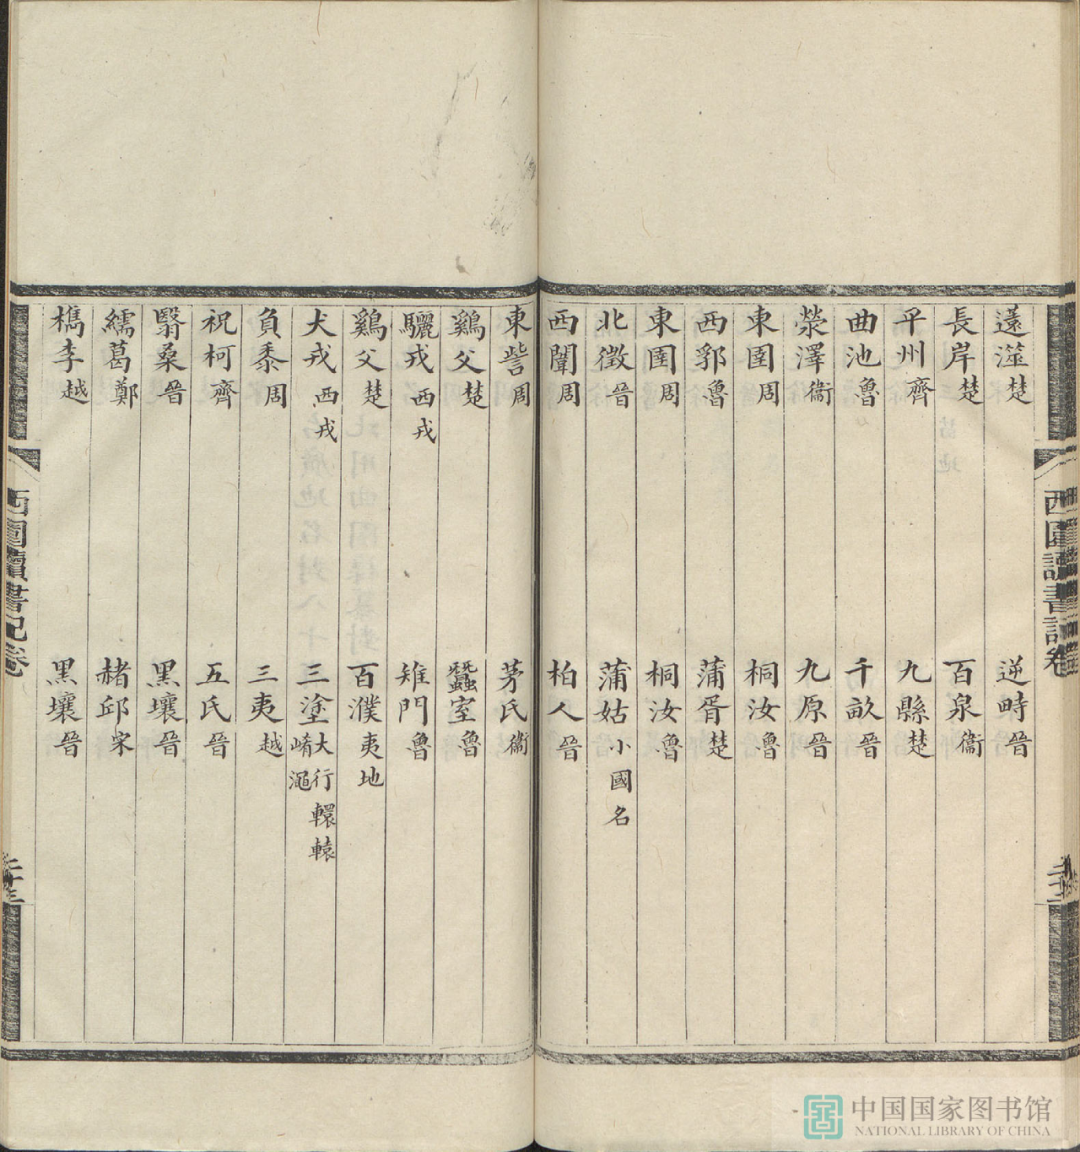 薳澨楚　逆畤晉
長岸楚　百泉衞
平州齊　九縣楚
曲池魯　千畝晉
滎澤衞　九原晉
東圉周　桐汝魯
西郛魯　蒲胥楚
東圉周　桐汝魯
北徵晉　蒲姑小國名
西闈周　柏人晉
東訾周　茅氏衞
鷄父楚　蠶室魯
驪戎西戎　雉門魯
鷄父楚　百濮夷地
犬戎西戎　三塗大行轘轅崤澠
負黍周　三夷越
祝柯齊　五氏晉
翳桑晉　黑壤晉
繻葛鄭　赭邱宋
檇李越　黑壤晉
西圃讀書記卷
中国国家图书馆
NATIONAL LIBRARY OF CHINA